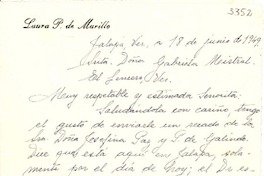 3352
Laura P. de Murillo
Jalapa, Ver. a 18 de junio de 1949,
Srita. Doña Gabriela Mistral.
El Lencero, Ver.
Muy respetable y estimada Señorita:
Saludándola con cariño, tengo
el gusto de enviarle un recado de la
Sra. Doña Josefina Paz y P. de Galindo.
Dice que está aquí en Jalapa, sola-
mente por el día de hoy; el Dr. es-